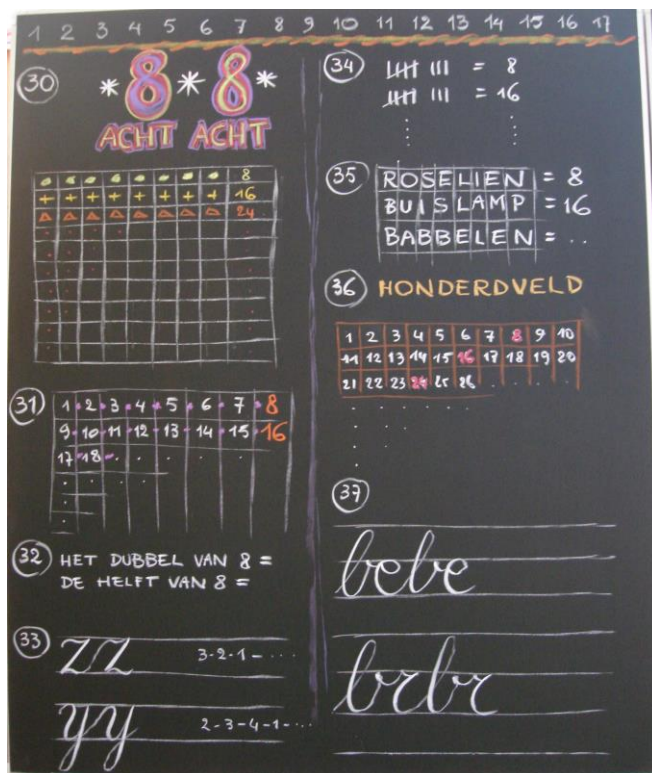 1 2 3 4 5 6 7 8 9 10 11 12 13 14 15 16 17
30
*8*8*
ACHT ACHT
8
+ + + + + + + + 16
24
31
1 2 3 4 5 6 7 8
9 10 11 12 13 14 15 16
17 18
32
HET DUBBEL VAN 8 =
DE HELFT VAN 8 =
33
zz 3-2-1-...
yy 2-3-4-1-...
34
= 8
= 16
35
ROSELIEN = 8
BUISLAMP = 16
BABBELEN = ..
36
HONDERDVELD
1 2 3 4 5 6 7 8 9 10
11 12 13 14 15 16 17 18 19 20
21 22 23 24 25 26
37
bebe
brbr